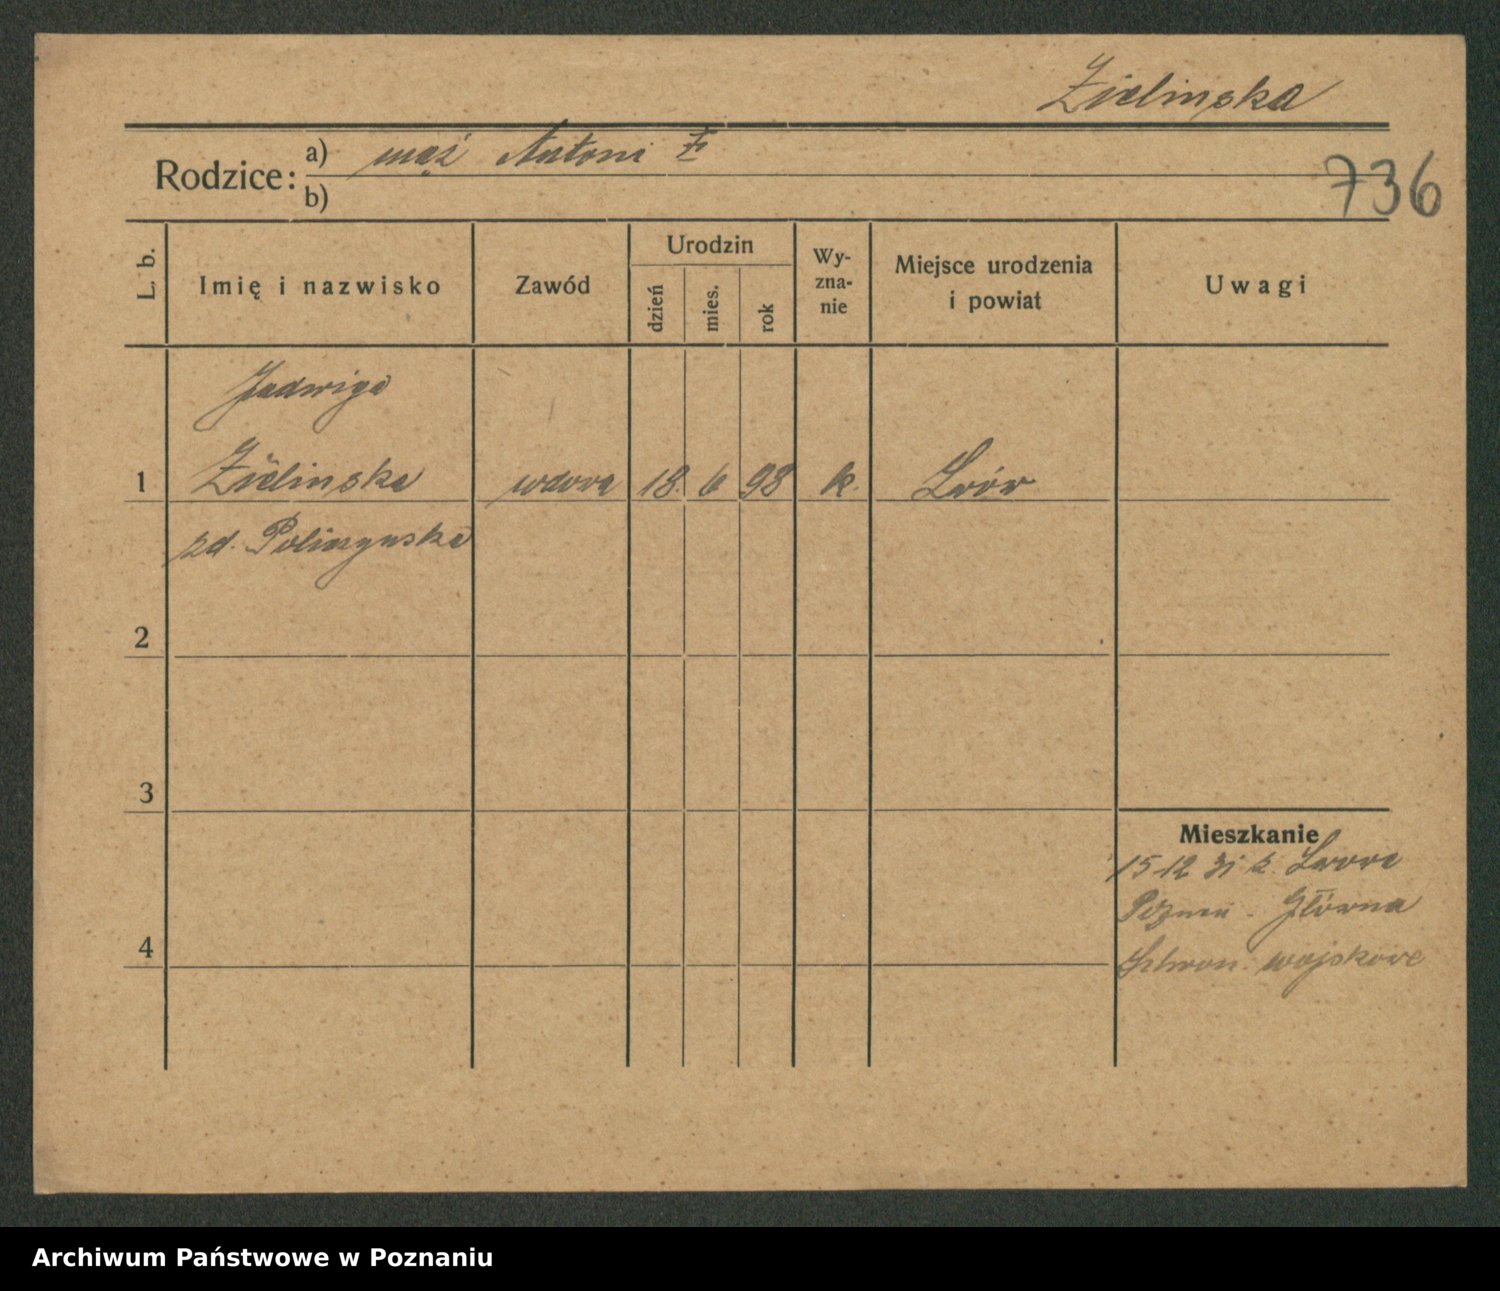 Zielinska
Rodzice: a) mąż Antoni
b)
736
L. b.
Imię i nazwisko
Zawód
Urodzin
dzień
mies.
rok
Wy-
zna-
nie
Miejsce urodzenia
i powiat
Uwagi
Jadwiga
1 Zielinska wdowa 18. 6 98 k. Lwów
zd.
2
3
Mieszkanie
15 12 31 z. Lwowa
Poznań - Główna
4 Schron. wojskowe
Archiwum Państwowe w Poznaniu